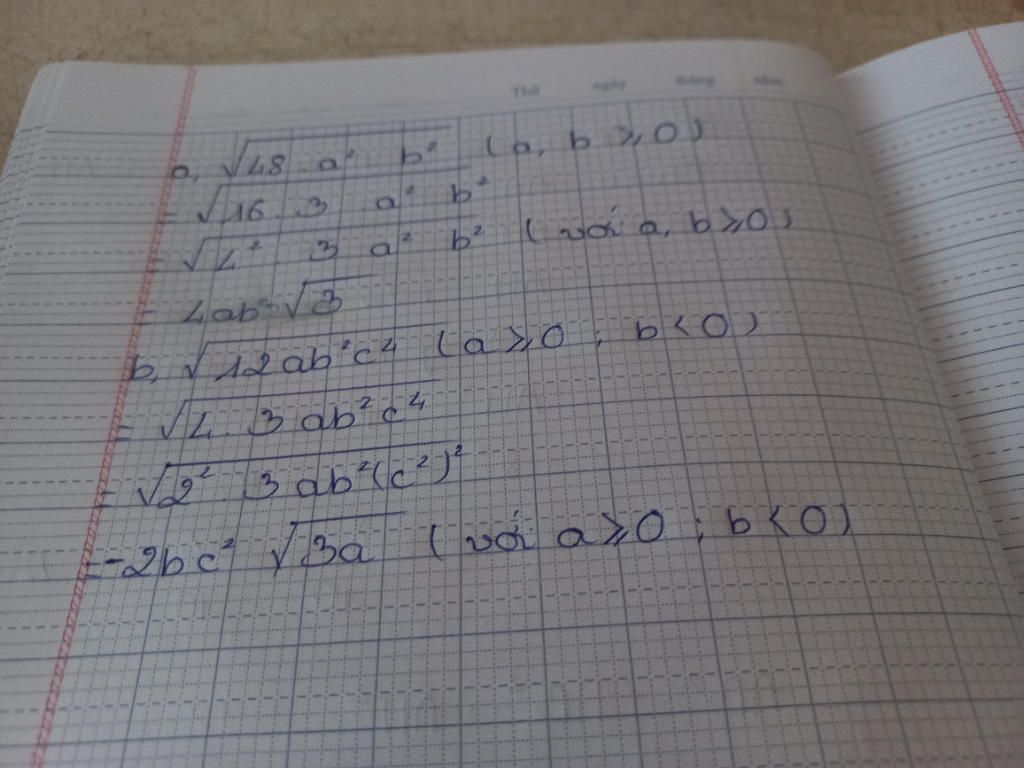 Thứ ngày tháng năm
a, √48 . a² b² (a, b ⩾ 0)
= √16 . 3 a² b²
= √4² 3 a² b² (với a, b ⩾ 0)
= 4ab √3
b, √12ab²c⁴ (a ⩾ 0 ; b < 0)
= √4 . 3 ab²c⁴
= √2² . 3 ab²(c²)²
= -2bc² √3a (với a ⩾ 0 ; b < 0)